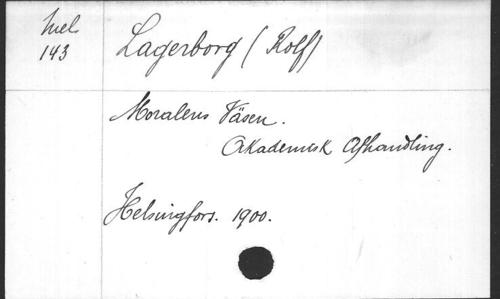 143
Lagerborg (Rolf)
Moralens Väsen.
Akademisk Afhandling.
Helsingfors. 1900.